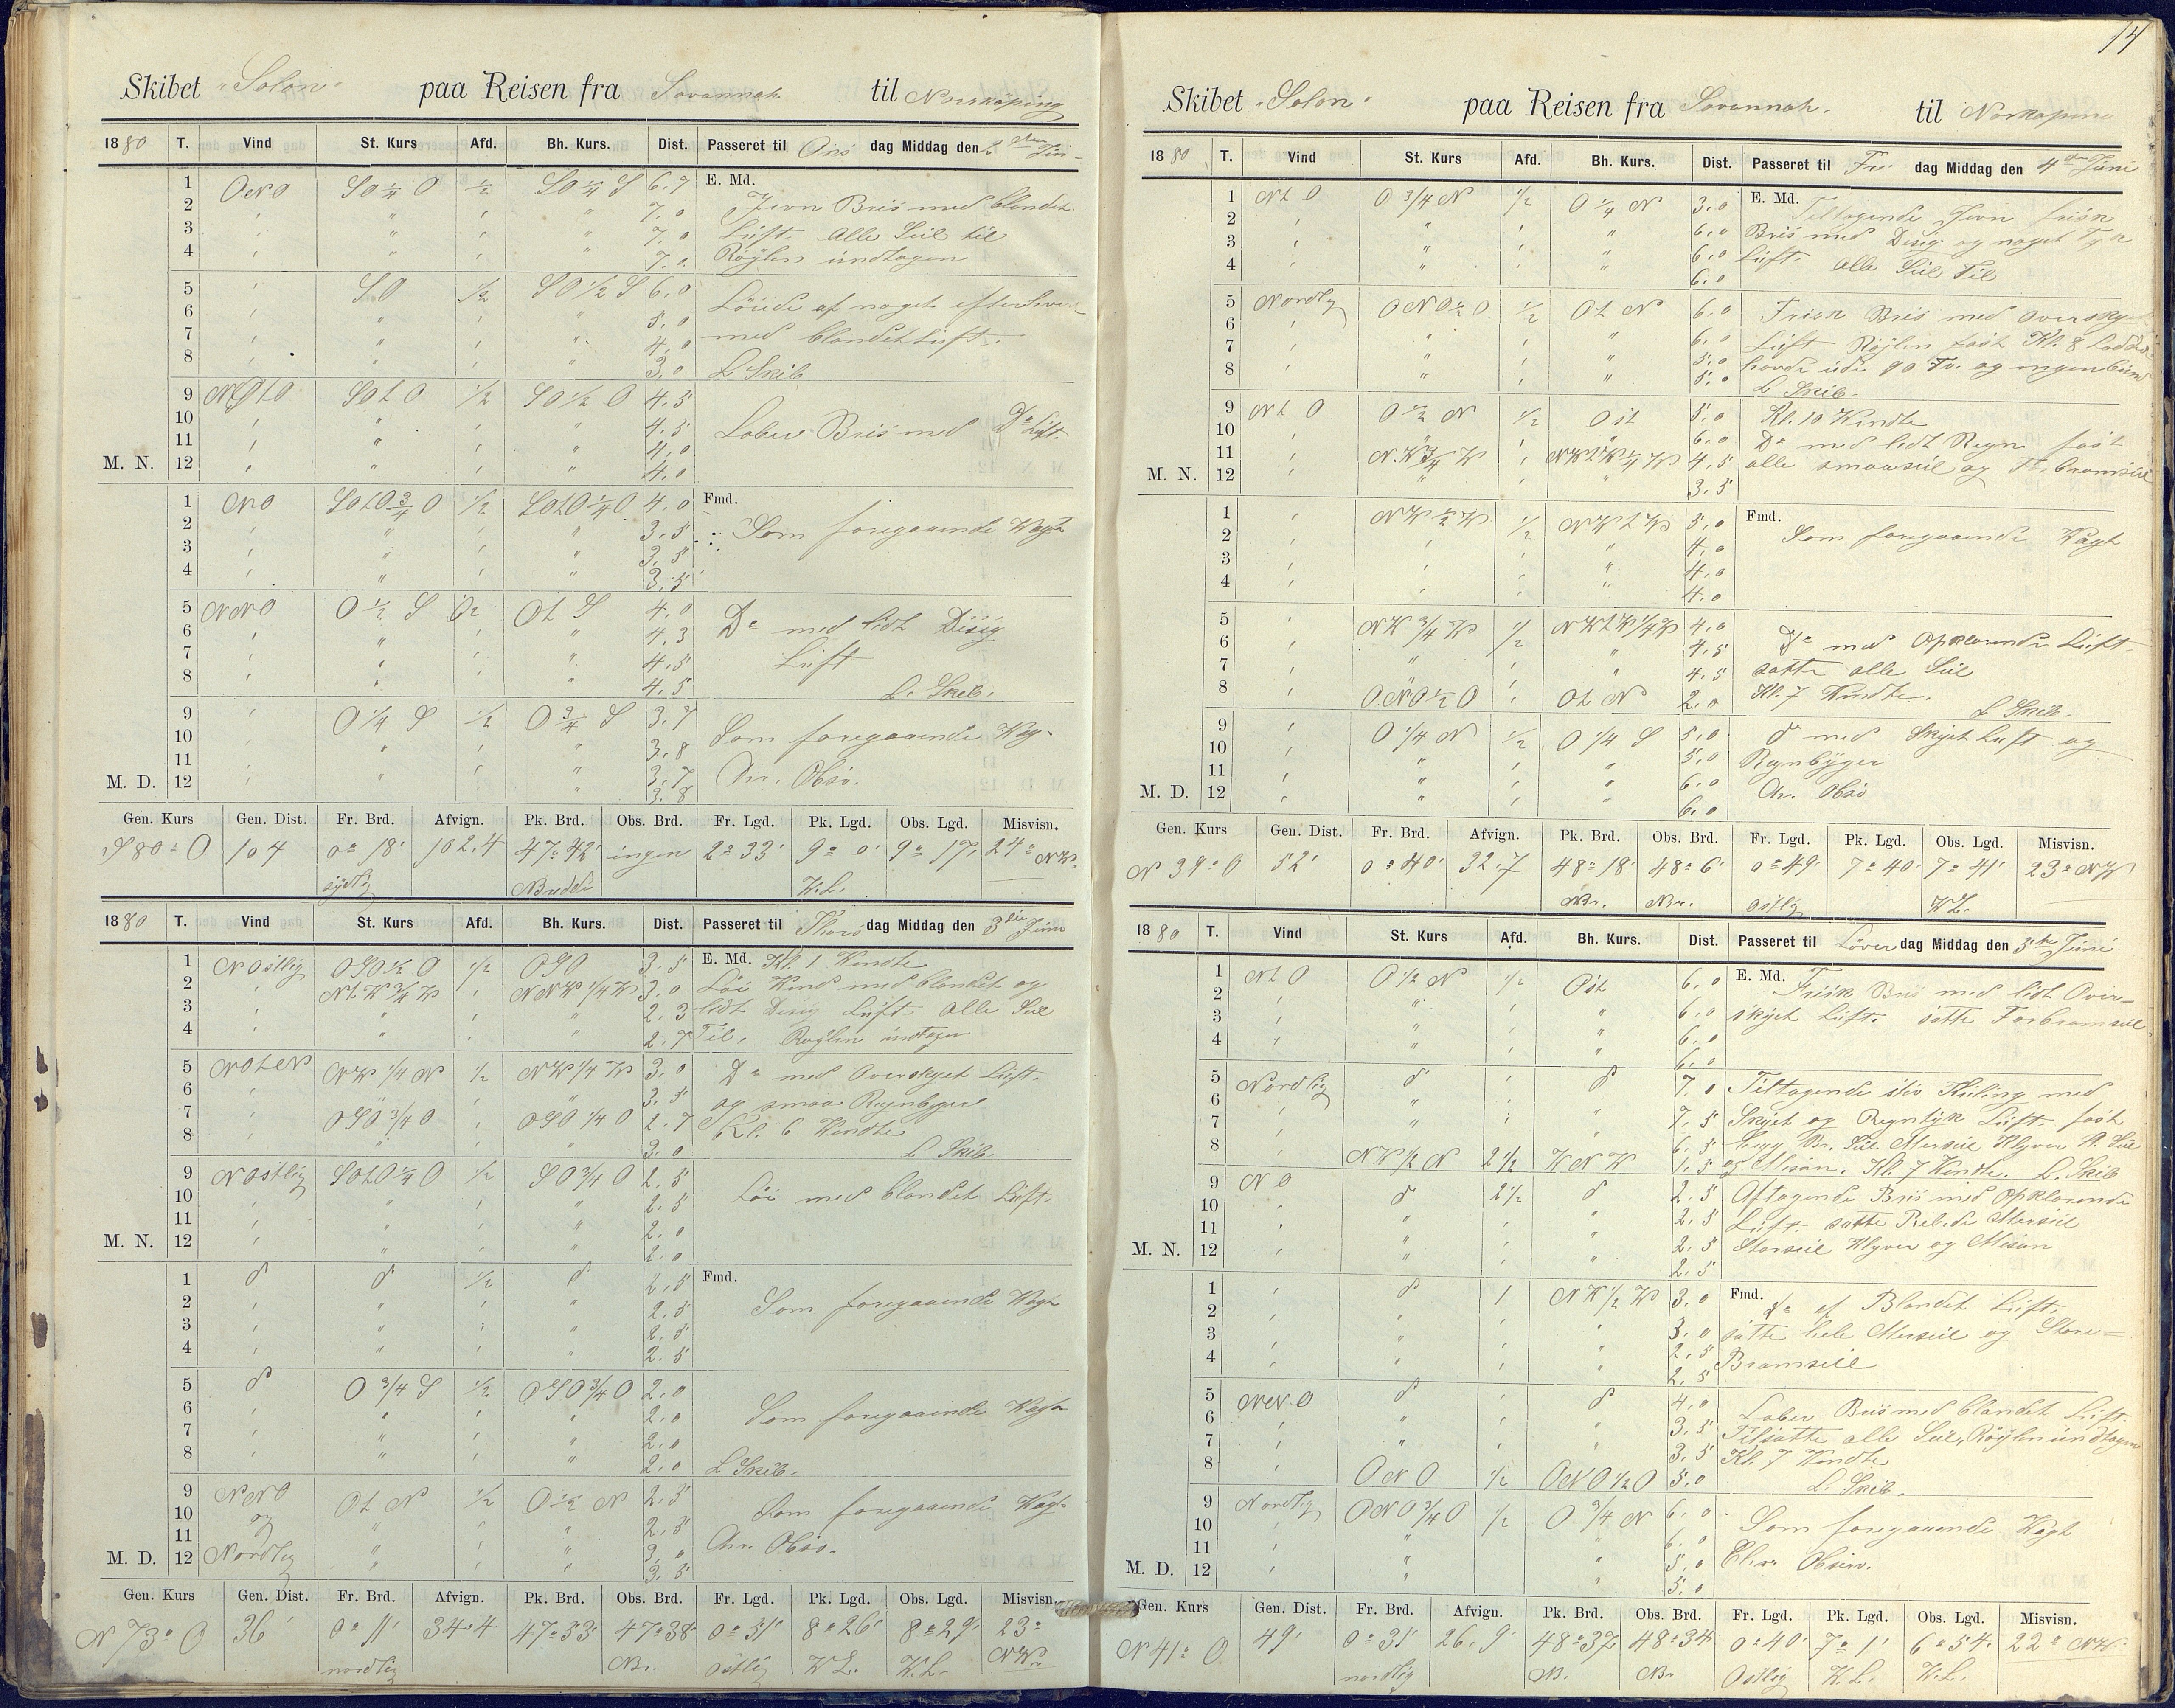 Skibet "Solon" paa Reisen fra Savannah til Norrköping
1880 T. Vind St. Kurs Afd. Bh. Kurs. Dist. Passeret til Ons dag Middag den 2den Juni
1 ONO SO 1/4 O 1/2 SO 1/4 S 6,7 E. Md.
2 " " " " 7,0 Jevn Bris med blandet
3 " " " " 7,0 Luft. Alle Seil til
4 " " " " 7,0 Röylen undtagen
5 " SO 1/2 SO 1/2 S 6,0
6 " " " " 5,0 Löiede af noget efterhver
7 " " " " 4,0 med blandet Luft.
8 " " " " 3,0 L. Skib
9 SOtO 1/2 SO 1/2 O 4,5
10 " " " " 4,5 Laber Bris med Do Luft.
11 " " " " 4,0
M. N. 12 " " " " 4,0
1 NO SOtO 3/4 O 1/2 SOtO 1/4 O 4,0 Fmd.
2 " " " " 3,5 Som foregaaende Vagt
3 " " " " 3,5
4 " " " " 3,5
5 NNO O 1/2 S OtS 4,0
6 " " " " 4,3 Do med lidt Disig
7 " " " " 4,5 Luft
8 " " " " 4,5 L. Skib.
9 " O 1/4 S 1/2 O 3/4 S 3,7
10 " " " " 3,8 Som foregaaende Vag-
11 " " " " 3,7 Chr. Obsv.
M. D. 12 " " " " 3,8
Gen. Kurs Gen. Dist. Fr. Brd. Afvign. Pk. Brd. Obs. Brd. Fr. Lgd. Pk. Lgd. Obs. Lgd. Misvisn.
S 80° O 104 0° 18' 102,4 47° 42' ingen 2° 33' 9° 0' 9° 17' 24° NW.
sydlig Bredde W.L.
1880 T. Vind St. Kurs Afd. Bh. Kurs. Dist. Passeret til Thors dag Middag den 3die Juni
1 NOstlig OSO 1/2 O 1/2 OSO 3,5 E. Md. Kl. 1 Vendte
2 " NtW 3/4 W " NNW 1/4 W 3,0 Löi Vind med blandet og
3 " " " " 2,3 lidt Disig Luft. Alle Seil
4 " " " " 2,7 Til, Röylen undtagen
5 NOtN NW 1/4 N 1/2 NW 1/4 W 3,0 Do med Overskyet Luft.
6 " " " " 3,5 og smaa Regnbyger
7 " OSO 3/4 O " OSO 1/4 O 2,7 Kl. 6 Vendte
8 " " " " 3,0 L. Skib.
9 NOstlig SOtO 1/4 O 1/2 SO 3/4 O 2,5
10 " " " " 2,5 Löi med blandet Luft.
11 " " " " 2,0
M. N. 12 " " " " 2,0
1 do do 1/2 do 2,5 Fmd.
2 " " " " 2,5 Som foregaaende Vagt
3 " " " " 2,5
4 " " " " 2,5
5 do O 3/4 S 1/2 OSO 3/4 O 2,0
6 " " " " 2,0 Som foregaaende Vagt
7 " " " " 2,0
8 " " " " 2,0 L. Skib.
9 NNO OtN 1/2 O 1/2 N 2,5
10 og " " " 2,5 Som foregaaende Vagt
11 " " " 3,0 Chr. Obsv.
M. D. 12 Nordlig " " " 3,5
Gen. Kurs Gen. Dist. Fr. Brd. Afvign. Pk. Brd. Obs. Brd. Fr. Lgd. Pk. Lgd. Obs. Lgd. Misvisn.
N 73° O 36' 0° 11' 34,4 47° 53' 47° 38' 0° 51' 8° 26' 8° 29' 23°
nordlig Br. ostlig W L. W. L. NW.
14
Skibet "Solon" paa Reisen fra Savannah. til Norköping
1880 T. Vind St. Kurs Afd. Bh. Kurs. Dist. Passeret til Fre dag Middag den 4de Juni
1 NtO O 3/4 N 1/2 O 1/4 N 3,0 E. Md.
2 " " " " 6,0 Tiltagende Jevn frisk
3 " " " " 6,0 Bris med Disig og noget Tyk
4 " " " " 6,0 Luft. Alle Seil Til
5 Nordlig ONO 1/2 O 1/2 OtN 6,0 Frisk Bris med overskyet
6 " " " " 6,0 Luft Röylen fast Kl. 8 Lodde
7 " " " " 5,0 havde ude 90 Fv. og ingen bund
8 " " " " 5,0 L. Skib.
9 NtO O 1/2 N 1/2 Ost 5,0 Kl. 10 Vendte
10 " " " " 6,0 Do med lidt Regn fast
11 " NW 3/4 W " NWtW 1/4 W 4,5 alle smaaseil og bramseil
M. N. 12 " " " " 3,5
1 " NW 1/2 W 1/2 NWtW 5,0 Fmd.
2 " " " " 4,0 Som foregaaende Vagt
3 " " " " 4,0
4 " " " " 4,0
5 " NW 3/4 W 1/2 NWtW 1/4 W 4,0
6 " " " " 4,5 Do med Opklarende Luft
7 " " " " 4,5 satte alle Seil
8 " ONO 1/2 O " OtN 2,0 Kl. 7 Vendte. L. Skib.
9 " O 1/4 N 1/2 O 1/4 S 5,0 do med Skyet Luft og
10 " " " " 5,0 Regnbyger
11 " " " " 6,0 Chr. Obsv
M. D. 12 " " " " 6,0
Gen. Kurs Gen. Dist. Fr. Brd. Afvign. Pk. Brd. Obs. Brd. Fr. Lgd. Pk. Lgd. Obs. Lgd. Misvisn.
N 39° O 52' 0° 40' 32,7 48° 18' 48° 6' 0° 49' 7° 40' 7° 41' 23° NW
Br. Br. ostlig W L.
1880 T. Vind St. Kurs Afd. Bh. Kurs. Dist. Passeret til Löver dag Middag den 5te Juni
1 NtO O 1/2 N 1/2 Ost 6,0 E. Md. Frisk Bris med lidt Over-
2 " " " " 6,0 skyet Luft. satte Forbramseil
3 " " " " 6,0
4 " " " " 6,0
5 Nordlig do " do 7,0 Tiltagende stiv Kuling med
6 " " " " 7,5 Skyet og Regntyk Luft. fast
7 " " " " 6,5 Br. Seil Merseil Klyver St. Seil
8 " NW 1/2 N 2 1/2 WNW 1,5 og Misan. Kl. 7 Vendte. L. Skib
9 NO do 2 1/2 do 2,5 Aftagende Bris med Opklarende
10 " " " " 2,5 Luft. satte Reb.de Merseil
11 " " " " 2,5 Storseil Klyver og Misan
M. N. 12 " " " " 2,5
1 " do 1 NW 1/2 W 3,0 Fmd. Do af Blandet Luft.
2 " " " " 3,0 satte hele Merseil og Store-
3 " " " " 2,5 Bramseil
4 " " " " 2,5
5 NNO do " do 4,0 Laber Bris med blandet Luft.
6 " " " " 3,5 Tilsatte alle Seil, Röylen undtagen
7 " " " " 3,5 Kl. 7 Vendte
8 " ONO 1/2 ONO 1/2 O 5,0 L. Skib.
9 Nordlig ONO 3/4 O 1/2 O 3/4 N 6,0
10 " " " " 6,0 Som foregaaende Vagt
11 " " " " 5,0 Chr. Observ.
M. D. 12 " " " " 5,0
Gen. Kurs Gen. Dist. Fr. Brd. Afvign. Pk. Brd. Obs. Brd. Fr. Lgd. Pk. Lgd. Obs. Lgd. Misvisn.
N 41° O 49' 0° 31' 26,9' 48° 37' 48° 34' 0° 40' 7° 1' 6° 54' 22° NW
nordlig B. Br Ostlig W.L. W.L.